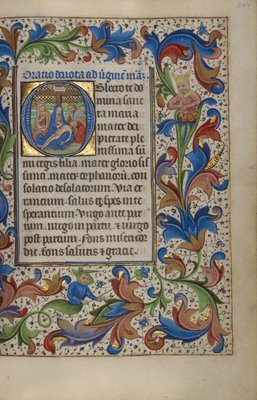 Oratio deuota ad v̄ginē maȓ
Obsecro te do
mina sanc
ta maria
mater dei
pietate ple
nissima sū
mi regis filia. mater glorio sis
sima. mater orphanorū. con
solatio desolatorum. Via er
rantium. salus et spes in te
sperantium. Virgo ante par
tum. virgo in partu. et virgo
post partum. fons misericor
die. fons salutis et gracie.
244